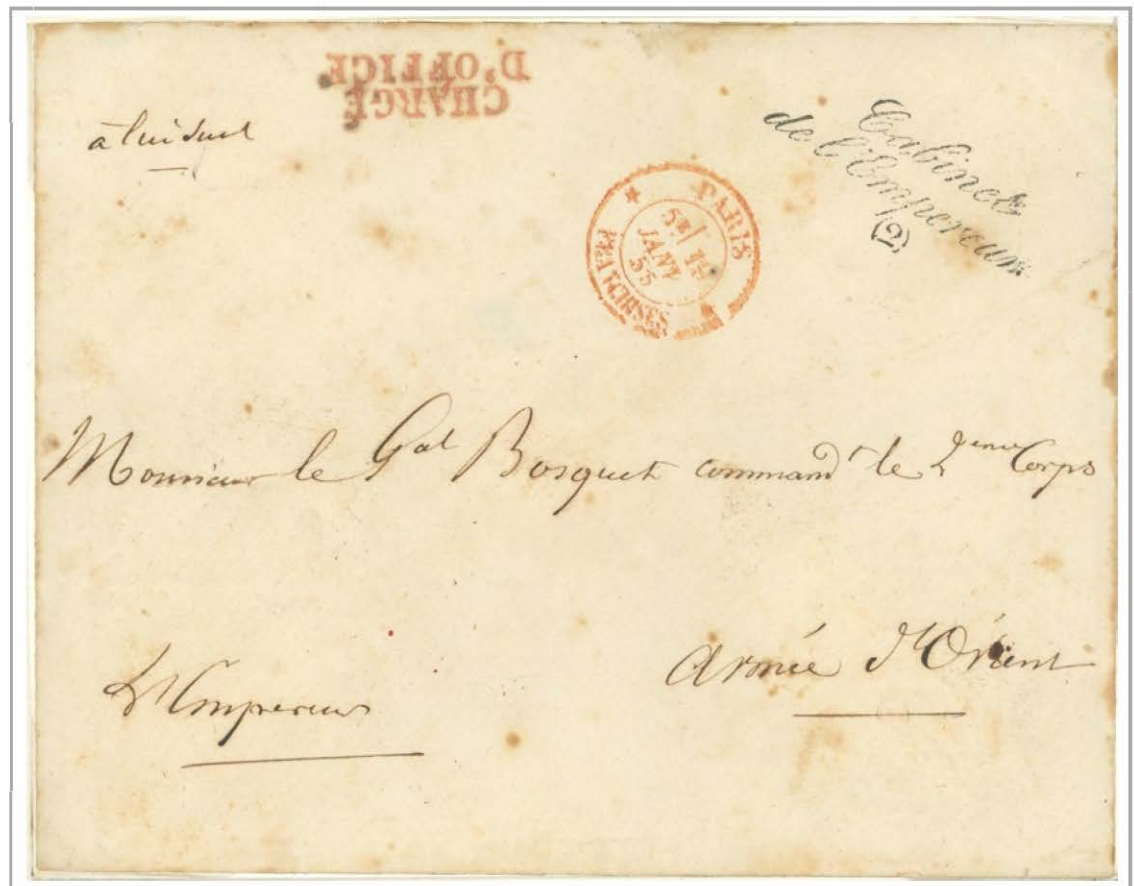 CHARGÉ
D'OFFICE
à lui seul
Cabinet
de l'Empereur
(2)
PARIS
5E 15
JANV
55
Monsieur le Gal Bosquet commandt le 2eme Corps
Armée d'Orient
L'Empereur